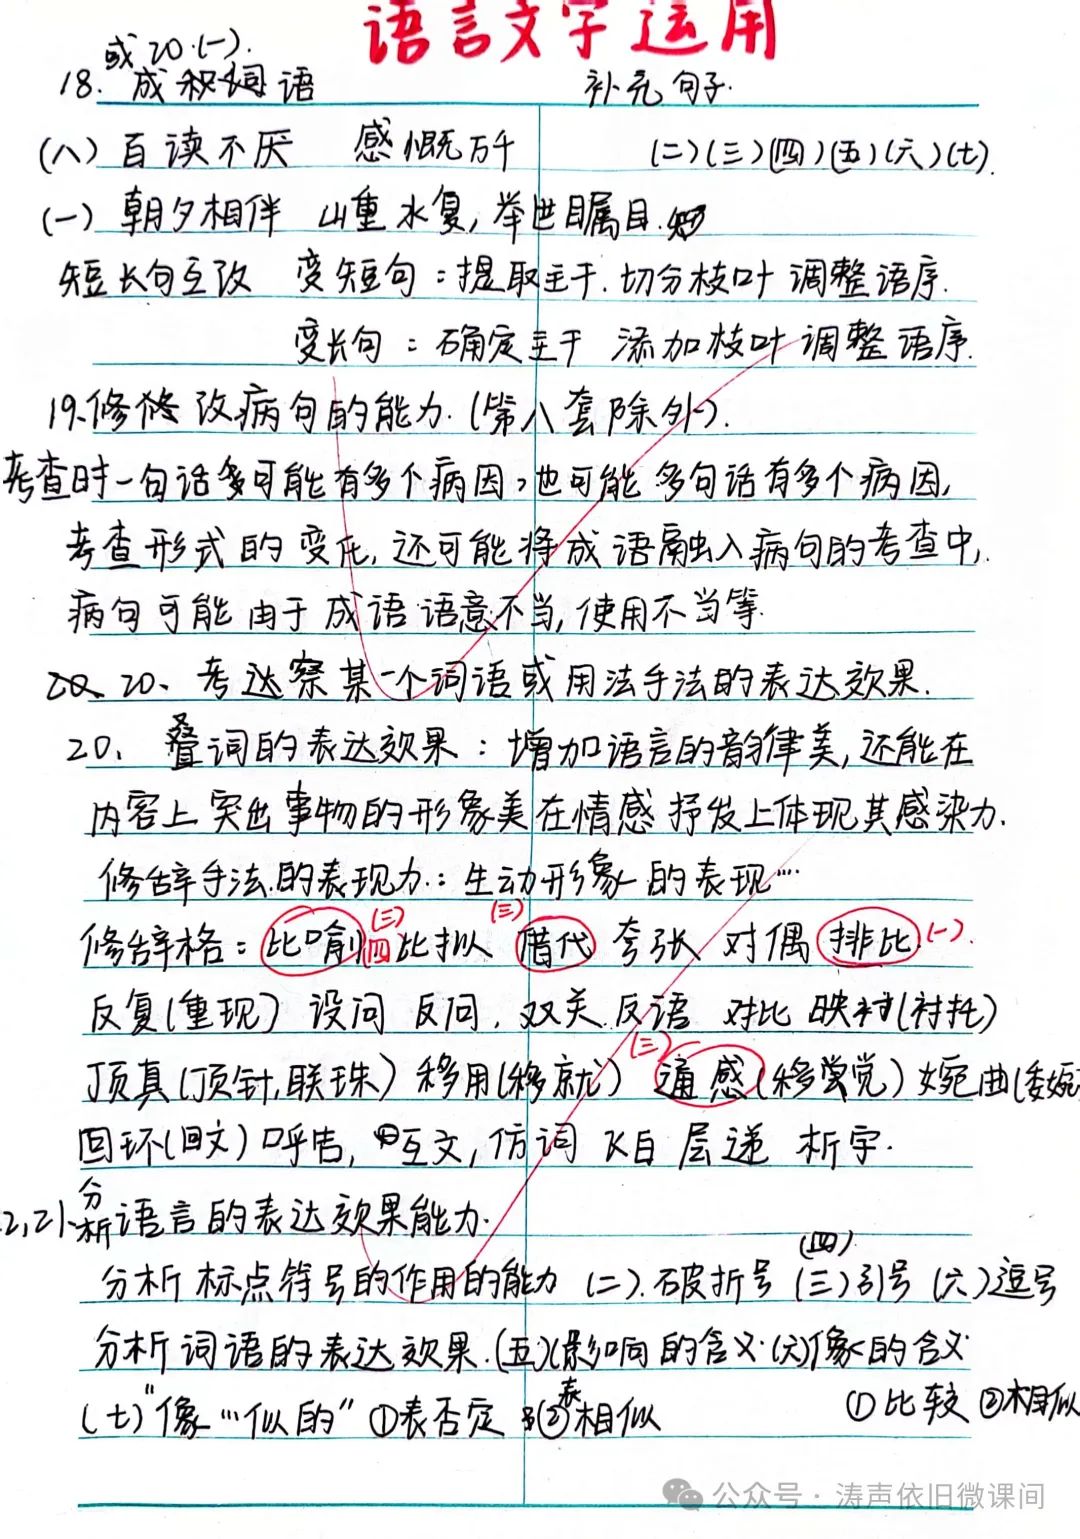 语言文字运用
或20.(一).
18. 成积词语 补充句子.
(八) 百读不厌 感慨万千 (二)(三)(四)(五)(六)(七).
(一) 朝夕相伴 山重水复, 举世瞩目.
短长句互改 变短句：提取主干. 切分枝叶 调整语序.
变长句：确定主干 添加枝叶 调整语序.
19.修改病句的能力.(第八套除外).
考查时一句话可能有多个病因,也可能多句话有多个病因,
考查形式的变化, 还可能将成语融入病句的考查中,
病句可能由于成语语意不当, 使用不当等.
20、考察某一个词语或用法手法的表达效果.
20. 叠词的表达效果：增加语言的韵律美, 还能在
内容上突出事物的形象美在情感抒发上体现其感染力.
修辞手法的表现力：生动形象的表现…
(三) (三)
修辞格：比喻 四 比拟 借代 夸张 对偶 排比 (一).
反复(重现) 设问 反问, 双关 反语 对比 映衬(衬托)
(三)
顶真(顶针,联珠) 移用(移就) 通感(移觉) 婉曲(委婉)
回环(回文) 呼告, 互文, 仿词 飞白 层递 析字.
2,21.分析语言的表达效果能力.
(四)
分析标点符号的作用的能力 (二).破折号 (三)引号 (六)逗号
分析词语的表达效果.(五)(影响的含义·(六)像的含义
(七)"像…似的" ①表否定 ②表相似 ①比较 ②相似
公众号·涛声依旧微课间